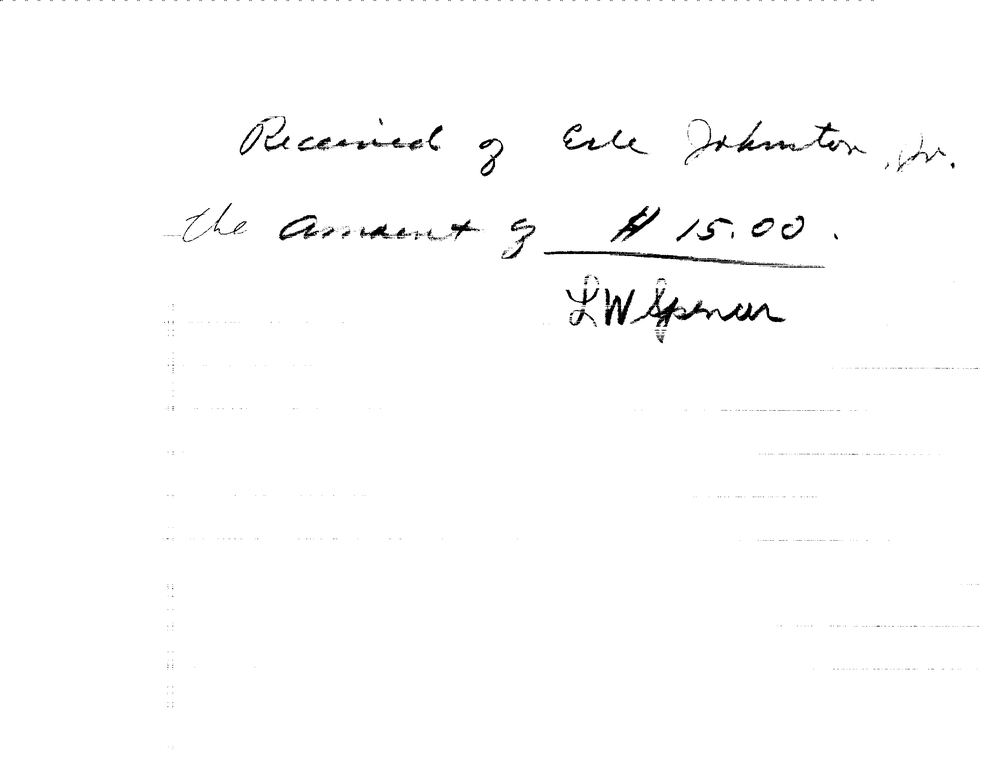 Received of Erle Johnston, Jr.
the amount of $ 15.00.
LW Spencer